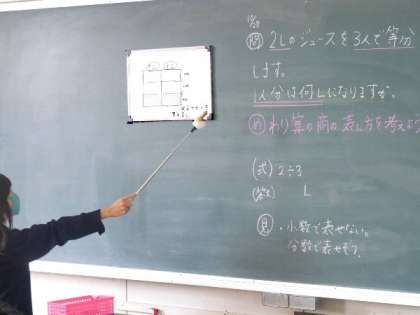 問 2Lのジュースを3人で等分
します。
1人分は何Lになりますか。
め わり算の商の表し方を考えよう
(式) 2÷3
(答え) L
見 ・小数で表せない。
分数で表せそう。